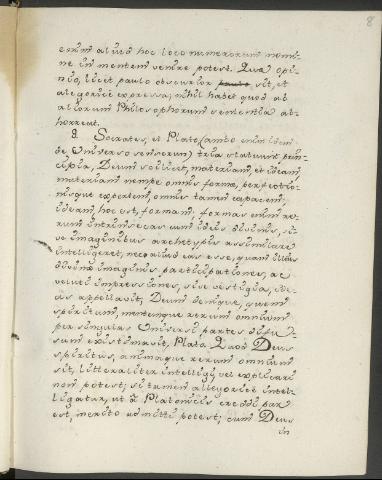 8
enim aliud hoc loco numerorum nomi-
ne in mentem venire potest. Quæ opi-
nio, licet paulo obscurior paulo sit, et
alegoricè expressa; nihil habet quod ab
aliorum Philosophorum sententia ab-
horreat.
9. Socrates, et Plato (ambo enim idem
de Universo senserunt) tria statuunt prin-
cipia, Deum scilicet, materiam, et ideam,
materiam nempe omnis formæ, perfectio-
nisque expertem, omnis tamen capacem;
ideam, hoc est, formam; formas enim re-
rum intrinsecas cum ideis divinis, si-
ve imaginibus archetypis assimilare
intelligeret, nec aliud eas esse, quam illius
divinæ imaginis participationes, ac
veluti impressiones, sive vestigia, ide-
as appellavit; Deum denique, quem
spiritum, mentemque rerum omnium
per singulas Universi partes diffu-
sum existimavit, Plato. Quod Deus
spiritus, animaque rerum omnium
sit, litteraliter intelligi, vel explicari
non potest; si tamen allegoricè intel-
ligatur, ut à Platonicis credi par
est, meritò admitti potest; cum Deus
in